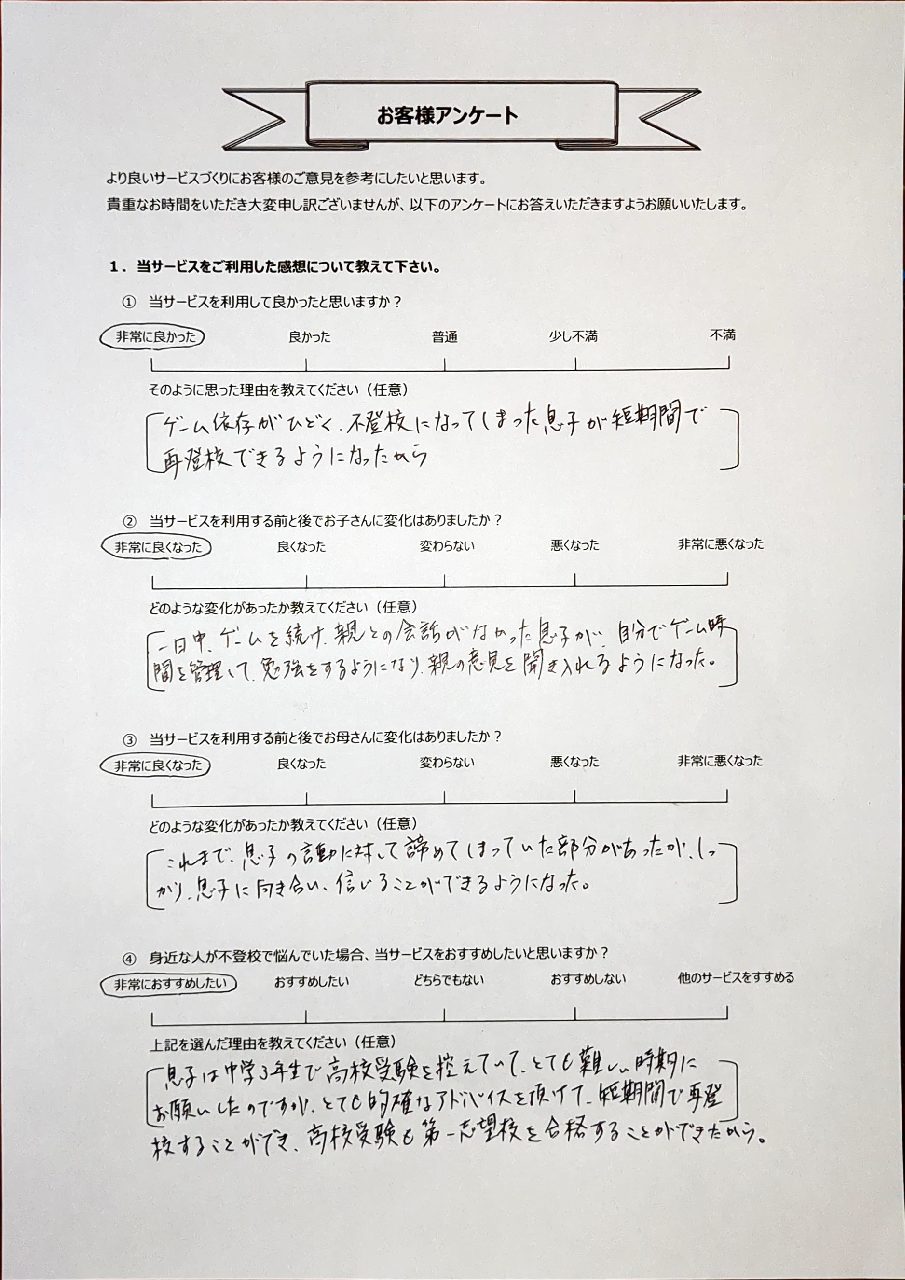 お客様アンケート
より良いサービスづくりにお客様のご意見を参考にしたいと思います。
貴重なお時間をいただき大変申し訳ございませんが、以下のアンケートにお答えいただきますようお願いいたします。
１．当サービスをご利用した感想について教えて下さい。
① 当サービスを利用して良かったと思いますか？
非常に良かった 良かった 普通 少し不満 不満
そのように思った理由を教えてください（任意）
ゲーム依存がひどく、不登校になってしまった息子が短期間で
再登校できるようになったから
② 当サービスを利用する前と後でお子さんに変化はありましたか？
非常に良くなった 良くなった 変わらない 悪くなった 非常に悪くなった
どのような変化があったか教えてください（任意）
一日中、ゲームを続け、親との会話がなかった息子が、自分でゲーム時
間を管理して、勉強をするようになり、親の意見を聞き入れるようになった。
③ 当サービスを利用する前と後でお母さんに変化はありましたか？
非常に良くなった 良くなった 変わらない 悪くなった 非常に悪くなった
どのような変化があったか教えてください（任意）
これまで、息子の言動に対して諦めてしまっていた部分があったが、しっ
かり、息子に向き合い、信じることができるようになった。
④ 身近な人が不登校で悩んでいた場合、当サービスをおすすめしたいと思いますか？
非常におすすめしたい おすすめしたい どちらでもない おすすめしない 他のサービスをすすめる
上記を選んだ理由を教えてください（任意）
息子は中学3年生で高校受験を控えていて、とても難しい時期に
お願いしたのですが、とても的確なアドバイスを頂けて、短期間で再登
校することができ、高校受験も第一志望校を合格することができたから。